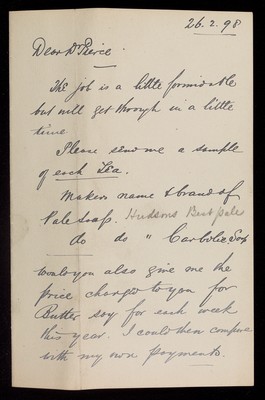 26.2.98
Dear Dr Pierce.
The job is a little formidable
but will get through in a little
time
Please send me a sample
of each Tea.
Makers name & brand of
Pale Soap. Hudsons Best pale
do do " Carbolic Soap
Would you also give me the
price charged to you for
Butter say for each week
this year. I could then compare
with my own payments.